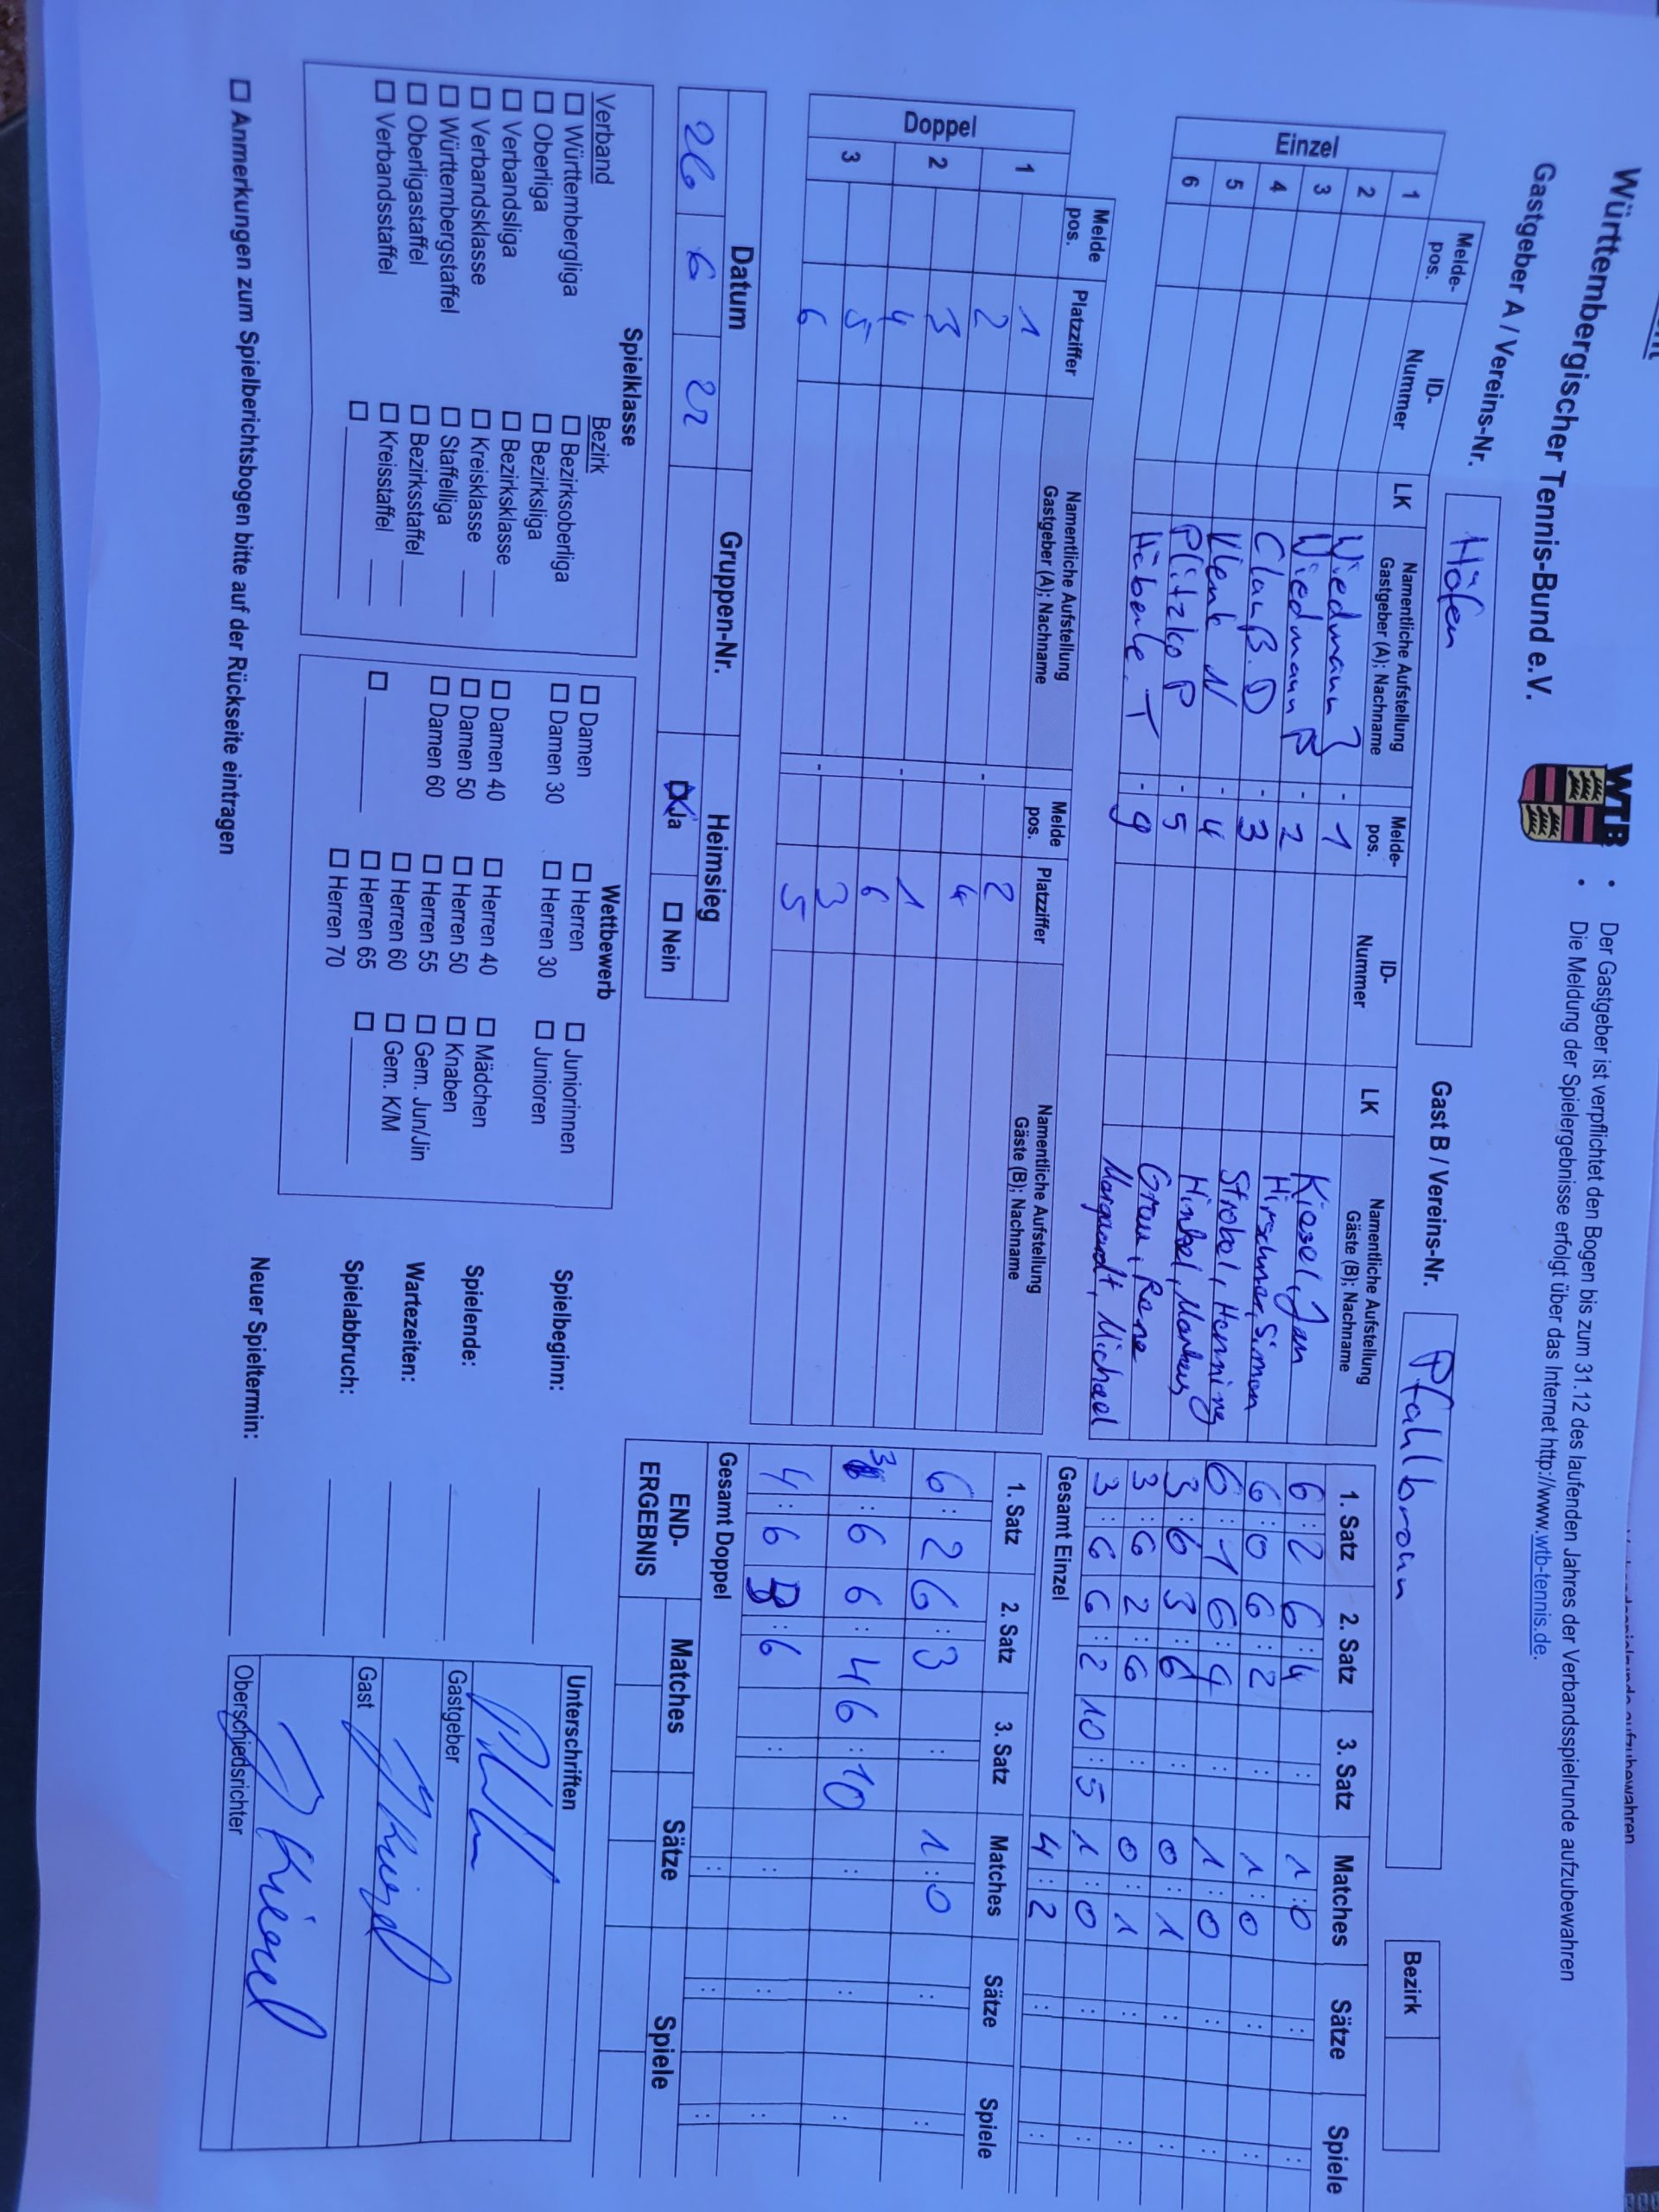 Württembergischer Tennis-Bund e.V.
WTB
• Der Gastgeber ist verpflichtet den Bogen bis zum 31.12 des laufenden Jahres der Verbandsspielrunde aufzubewahren
• Die Meldung der Spielergebnisse erfolgt über das Internet http://www.wtb-tennis.de.
Gastgeber A / Vereins-Nr. Höfen Gast B / Vereins-Nr. Pfahlbronn Bezirk
Einzel Melde-pos. ID-Nummer LK Namentliche Aufstellung Gastgeber (A); Nachname Melde-pos. ID-Nummer LK Namentliche Aufstellung Gäste (B); Nachname 1. Satz 2. Satz 3. Satz Matches Sätze Spiele
1 Wiedmann - 1 Kiesel, Jan 6 : 2 6 : 4 : 1 : 0 : :
2 Wiedmann P - 2 Hirschner, Simon 6 : 0 6 : 2 : 1 : 0 : :
3 Clauß. D - 3 Strobel, Henning 6 : 1 6 : 4 : 1 : 0 : :
4 Klenk N - 4 Hinkel, Markus 3 : 6 3 : 6 : 0 : 1 : :
5 Plitzko P - 5 Rene 3 : 6 2 : 6 : 0 : 1 : :
6 Häberle. T - 9 Marquardt, Michael 3 : 6 6 : 2 10 : 5 1 : 0 : :
Gesamt Einzel 4 : 2 : :
Doppel Melde pos. Platzziffer Namentliche Aufstellung Gastgeber (A); Nachname Melde pos. Platzziffer Namentliche Aufstellung Gäste (B); Nachname 1. Satz 2. Satz 3. Satz Matches Sätze Spiele
1 1 2
2 - 4 6 : 2 6 : 3 : 1 : 0 : :
2 3 1
4 - 6 3 : 6 6 : 4 6 : 10 : : :
3 5 3
6 - 5 4 : 6 : 6 : : : :
Gesamt Doppel : : :
Datum Gruppen-Nr. Heimsieg
26 6 22 ☒ Ja ☐ Nein
END-ERGEBNIS Matches Sätze Spiele
Spielklasse
Verband Bezirk
☐ Württembergliga ☐ Bezirksoberliga
☐ Oberliga ☐ Bezirksliga
☐ Verbandsliga ☐ Bezirksklasse ____
☐ Verbandsklasse ☐ Kreisklasse ____
☐ Württembergstaffel ☐ Staffelliga
☐ Oberligastaffel ☐ Bezirksstaffel ____
☐ Verbandsstaffel ☐ Kreisstaffel ____
☐ ____
Wettbewerb
☐ Damen ☐ Herren ☐ Juniorinnen
☐ Damen 30 ☐ Herren 30 ☐ Junioren
☐ Damen 40 ☐ Herren 40 ☐ Mädchen
☐ Damen 50 ☐ Herren 50 ☐ Knaben
☐ Damen 60 ☐ Herren 55 ☐ Gem. Jun/Jin
☐ Herren 60 ☐ Gem. K/M
☐ ____ ☐ Herren 65 ☐ ____
☐ Herren 70
Spielbeginn: ____
Spielende: ____
Wartezeiten: ____
Spielabbruch: ____
Neuer Spieltermin: ____
Unterschriften
Gastgeber
Gast
J. Kiesel
Oberschiedsrichter
☐ Anmerkungen zum Spielberichtsbogen bitte auf der Rückseite eintragen